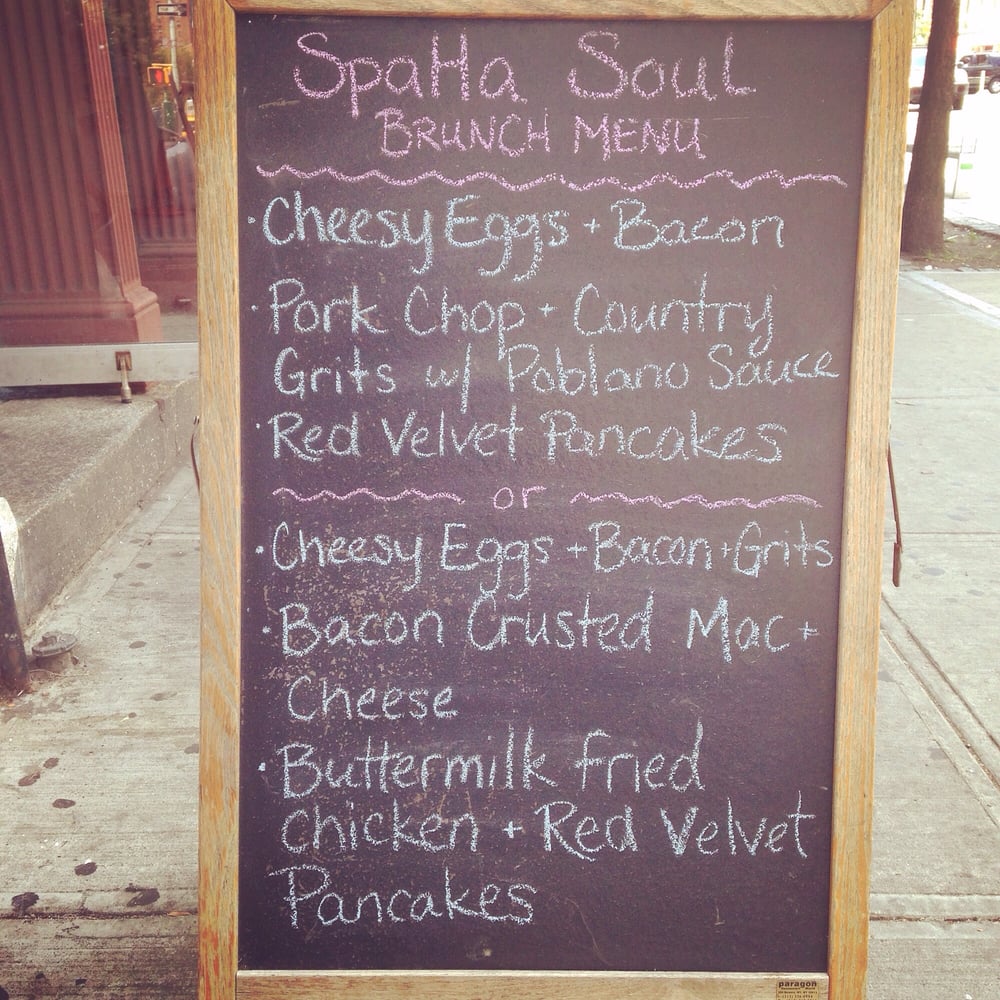 SpaHa Soul
BRUNCH MENU
· Cheesy Eggs + Bacon
· Pork Chop + Country
Grits w/ Poblano Sauce
· Red Velvet Pancakes
or
· Cheesy Eggs + Bacon + Grits
· Bacon Crusted Mac +
Cheese
· Buttermilk Fried
Chicken + Red Velvet
Pancakes
paragon